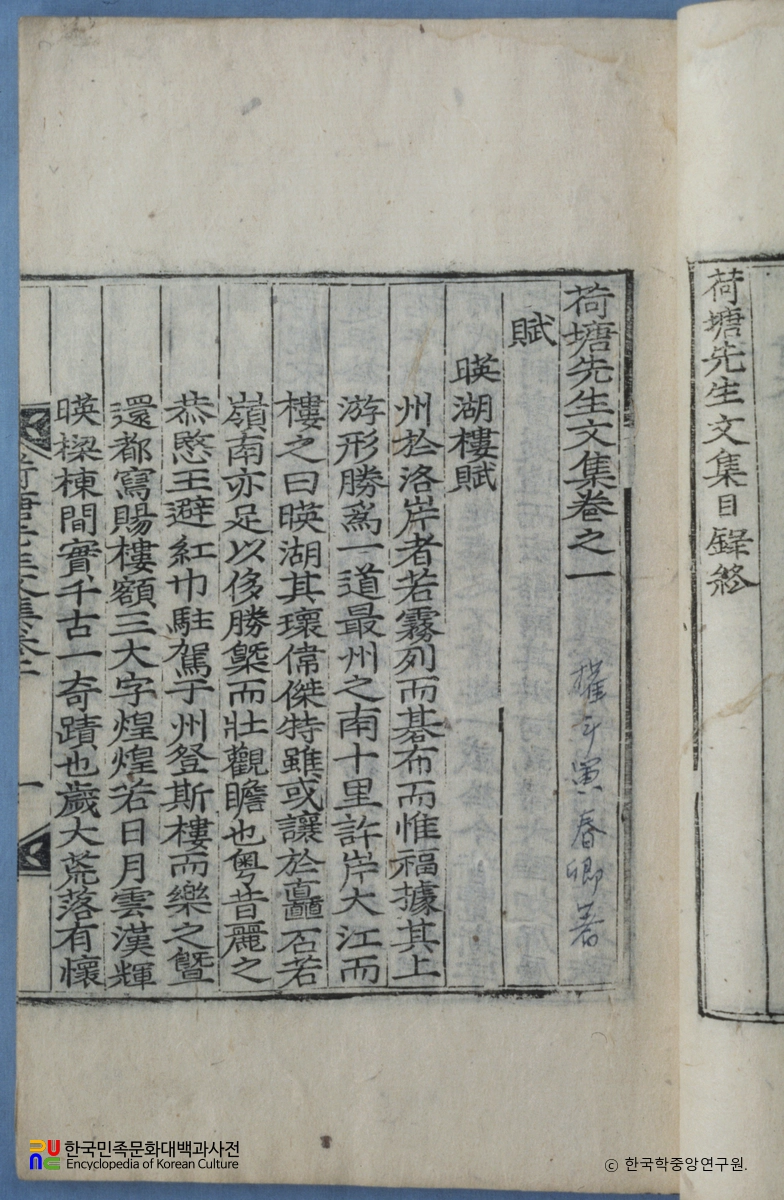 荷塘先生文集目錄終
荷塘先生文集卷之一
權斗寅春卿著
賦
暎湖樓賦
州於洛岸者若霧列而碁布而惟福據其上
游形勝爲一道最州之南十里許岸大江而
樓之曰暎湖其瓌偉傑特雖或讓於矗石若
嶺南亦足以侈勝槩而壯觀瞻也粤昔麗之
恭愍王避紅巾駐駕于州登斯樓而樂之曁
還都寫賜樓額三大字煌煌若日月雲漢輝
暎樑棟間實千古一奇蹟也歲大荒落有懷
一
한국민족문화대백과사전
Encyclopedia of Korean Culture
ⓒ 한국학중앙연구원.